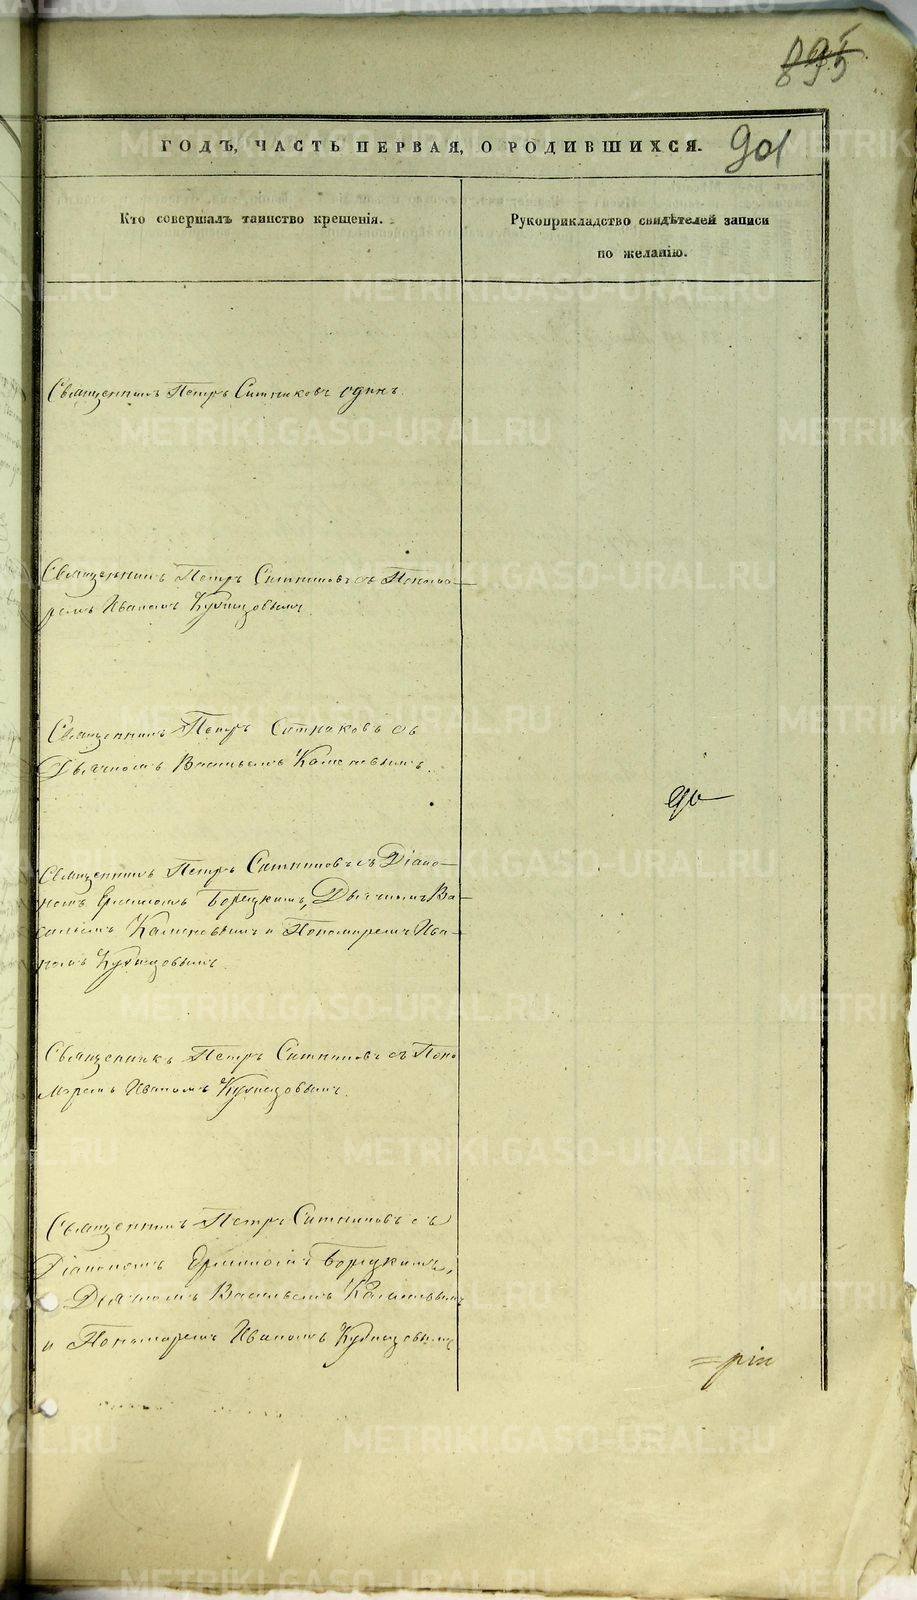 895
901
ГОДЪ, ЧАСТЬ ПЕРВАЯ, О РОДИВШИХСЯ.
Кто совершалъ таинство крещенія.
Рукоприкладство свидѣтелей записи
по желанію.
Священникъ Петръ Ситниковъ один.
Священникъ Петръ Ситниковъ съ Понома-
ремъ Иваномъ Кузнецовымъ.
Священникъ Петръ Ситниковъ съ
Дьячкомъ Васильемъ
Священникъ Петръ Ситниковъ съ Діако-
номъ Дьячкомъ Ва-
сильемъ и Пономаремъ Ива-
номъ Кузнецовымъ.
Священникъ Петръ Ситниковъ съ Поно
маремъ Иваномъ Кузнецовымъ.
Священникъ Петръ Ситниковъ съ
Діакономъ
Дьячкомъ Васильемъ
и Пономаремъ Иваномъ Кузнецовымъ
METRIKI.GASO-URAL.RU